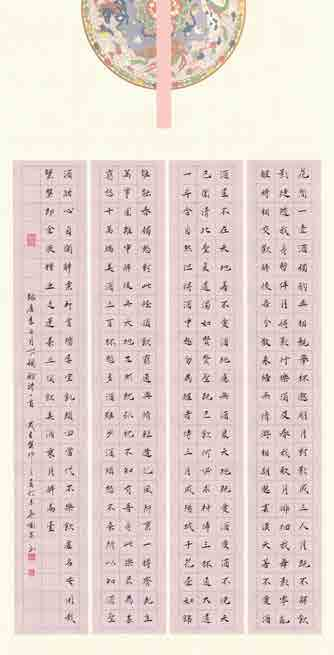 花間一壺酒獨酌無相親舉杯邀明月對影成三人月既不解飲
影徒隨我身暫伴月將影行樂須及春我歌月徘徊我舞影零亂
醒時相交歡醉後各分散永結無情遊相期邈雲漢天若不愛酒
酒星不在天地若不愛酒地應無酒泉天地既愛酒愛酒不愧天
已聞清比聖復道濁如賢賢聖既已飲何必求神仙三杯通大道
一斗合自然但得酒中趣勿為醒者傳三月咸陽城千花晝如錦
誰能春獨愁對此徑須飲窮通與修短造化夙所稟一樽齊死生
萬事固難審醉後失天地兀然就孤枕不知有吾身此樂最為甚
窮愁千萬端美酒三百杯愁多酒雖少酒傾愁不來所以知酒聖
酒酣心自開辭粟臥首陽屢空飢顏回當代不樂飲虛名安用哉
蟹螯即金液糟丘是蓬萊且須飲美酒乘月醉高臺
錄唐李白月下獨酌詩四首